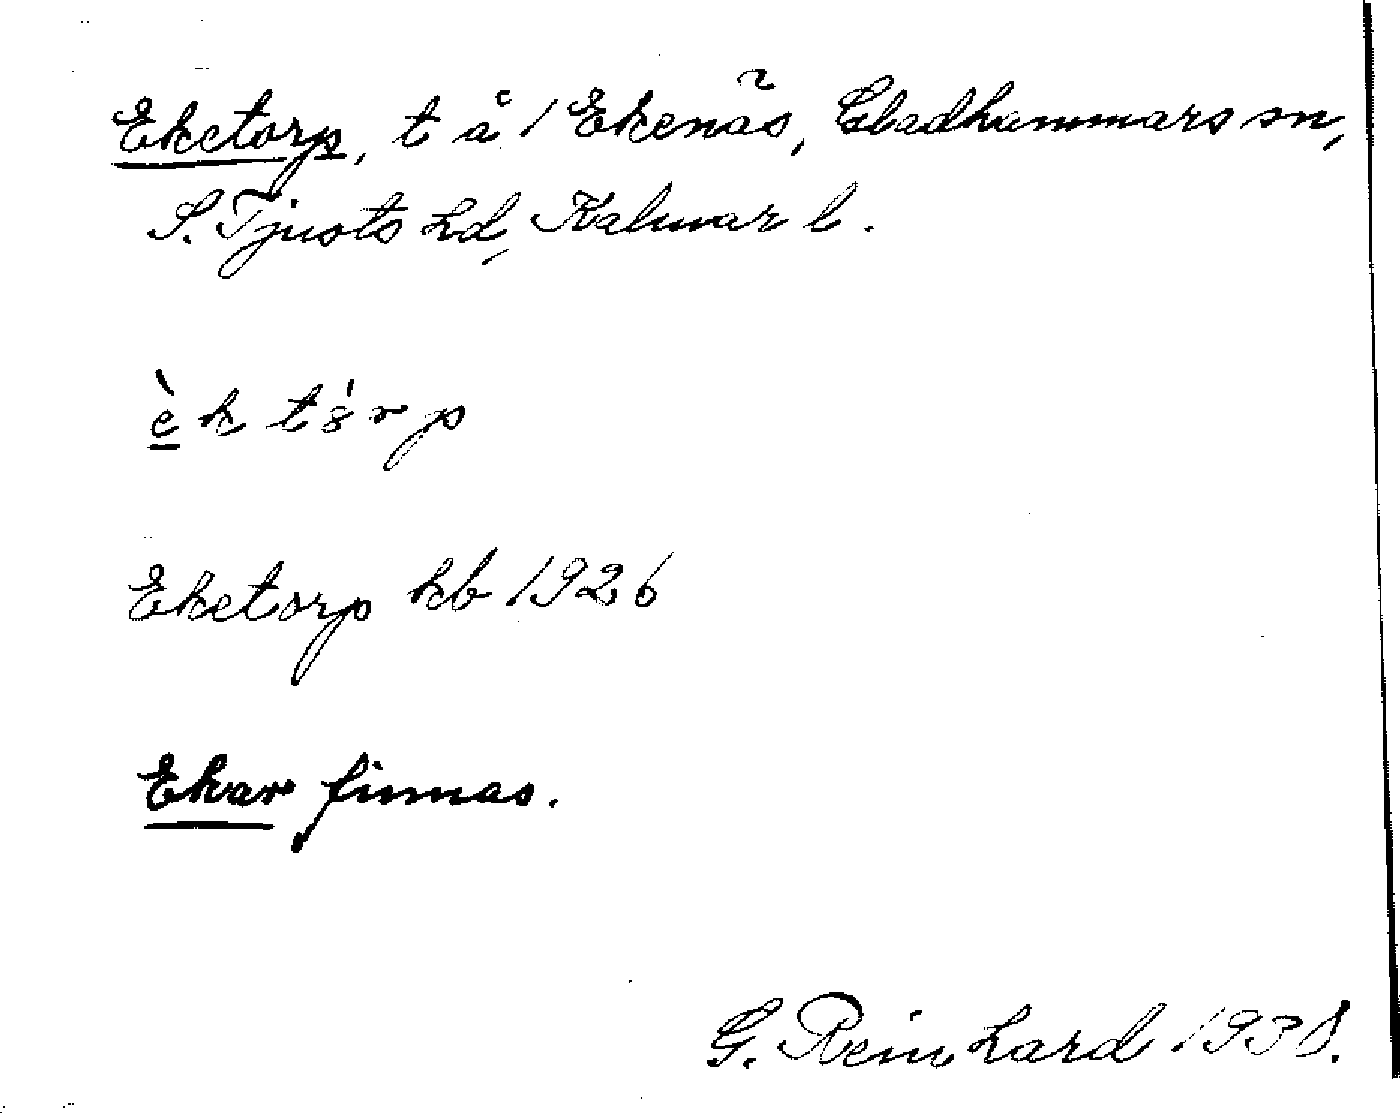 Eketorp, t å 1 Ekenäs, Gladhammars sn,
S. Tjusts hd, Kalmar l.
èktórp
Eketorp kb 1926
Ekar finnas.
G. Reinhard 1938.